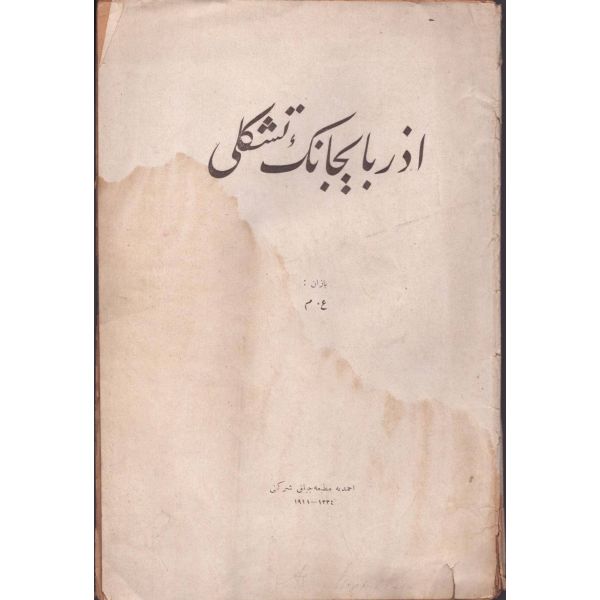 اذربايجانڭ تشكلى
يازان :
ع . م
احمديه مطبعه‌جيلق شركتى
١٣٣٤—١٩١٨